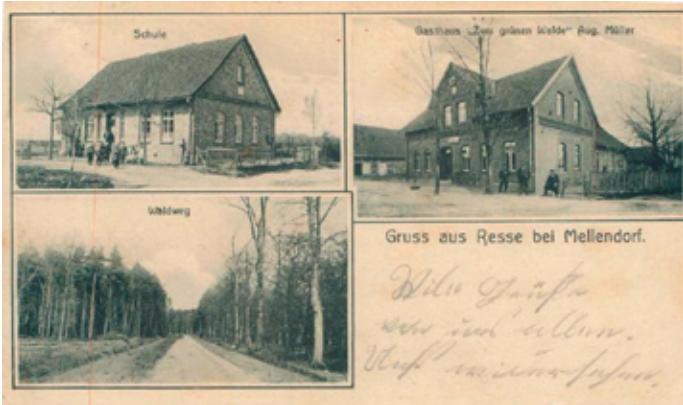 Schule
Gasthaus „Zum grünen Walde“ Aug. Müller
Waldweg
Gruss aus Resse bei Mellendorf.
Viele Grüße
von uns allen.
Auf wiedersehen.